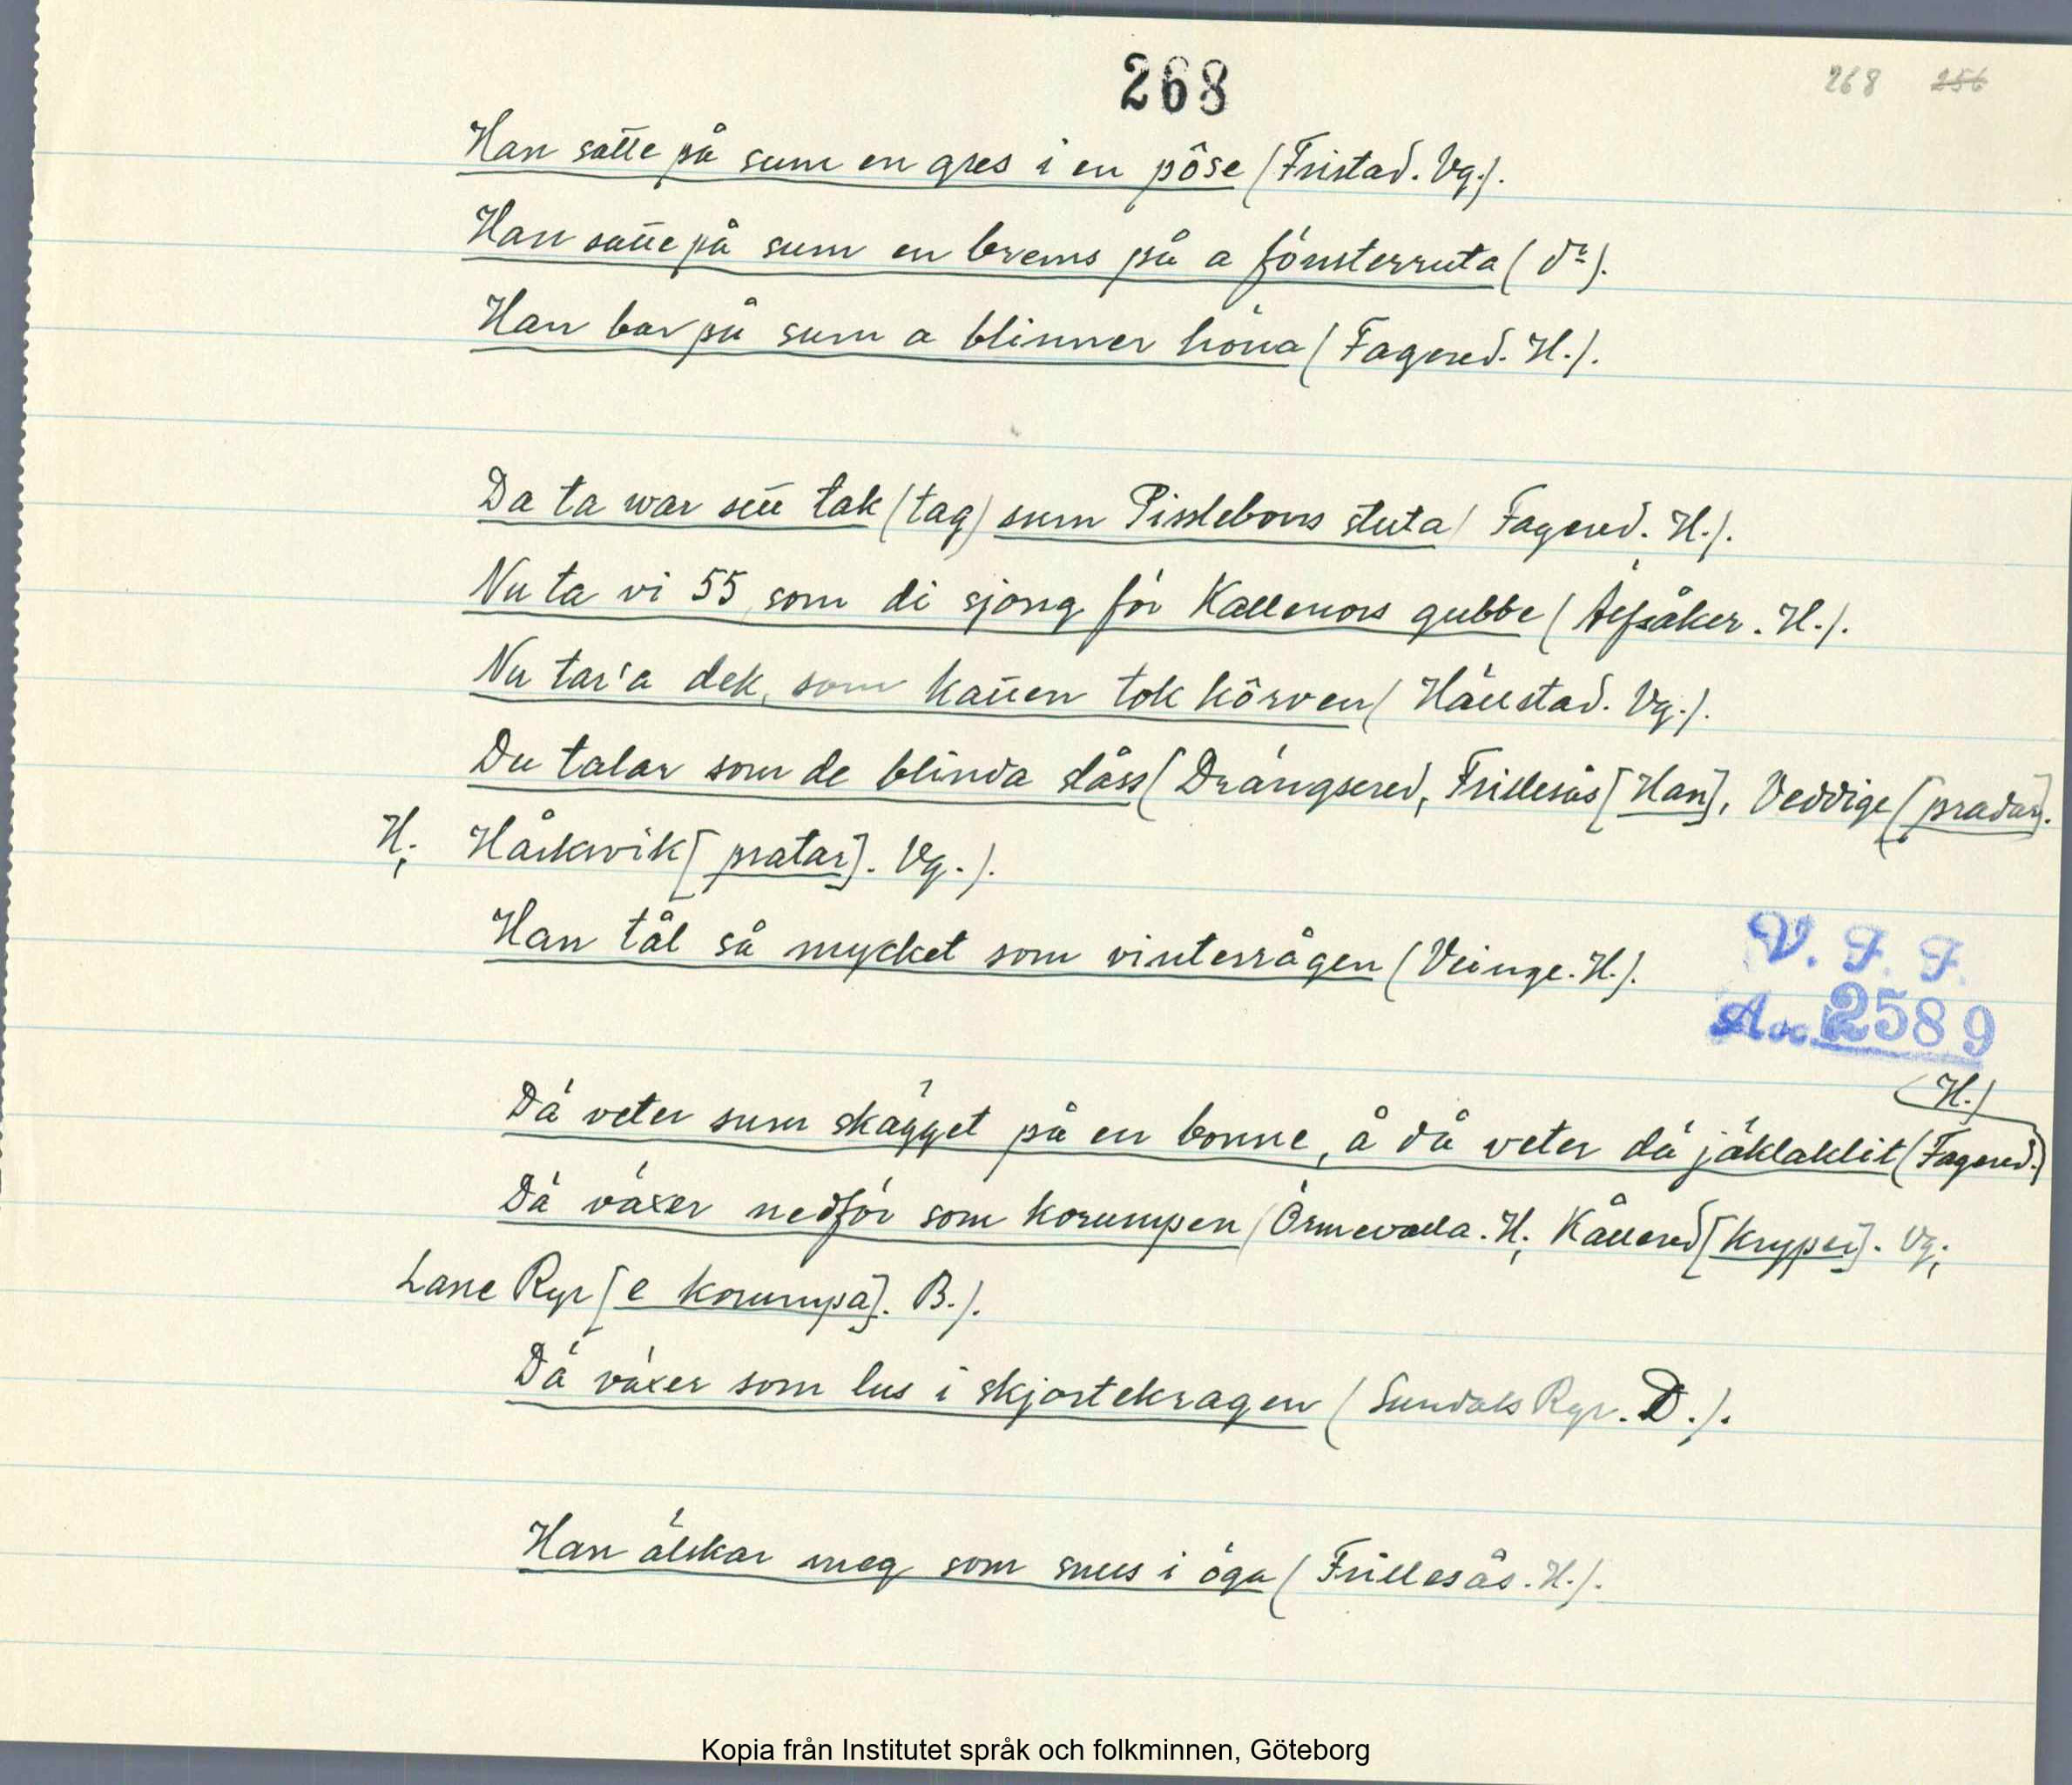 268
268 256
Han satte på sum en gres i en pôse (Fristad. Vg.).
Han satte på sum en brems på a fönsterruta (do).
Han bar på sum a blinner höna (Fagered. H.).
Da ta war sitt tak (tag) sum Pisslebons stuta (Fagered. H.).
Nu ta vi 55, som di sjöng för Kallemors gubbe (Älfsåker. H.).
Nu tar'a dek, som katten tok körven (Hällstad. Vg.).
Du talar som de blinda slåss (Drängsered, Frillesås [Han], Veddige [pradar].
H; Hårkvik [pratar]. Vg.).
Han tål så mycket som vinterrågen (Veinge. H.).
V. F. F.
Acc. 2589
(H.)
Dä veter sum skägget på en bonne, å då veter dä jäklaklit (Fagered.)
Dä växer nedför som korumpen (Ölmevalla. H; Kållered [kryper]. Vg;
Lane Ryr [e korumpa]. B.).
Dä växer som lus i skjortekragen (Sundals Ryr. D.).
Han älskar meg som snus i öga (Frillesås. H.).
Kopia från Institutet språk och folkminnen, Göteborg